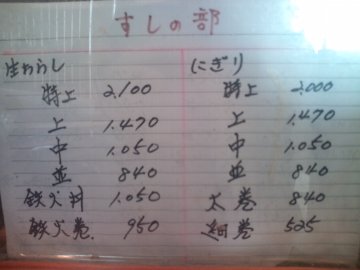 すしの部
生ちらし
特上 2,100
上 1,470
中 1,050
並 840
鉄火丼 1,050
鉄火巻 950
にぎり
特上 2,000
上 1,470
中 1,050
並 840
太巻 840
細巻 525